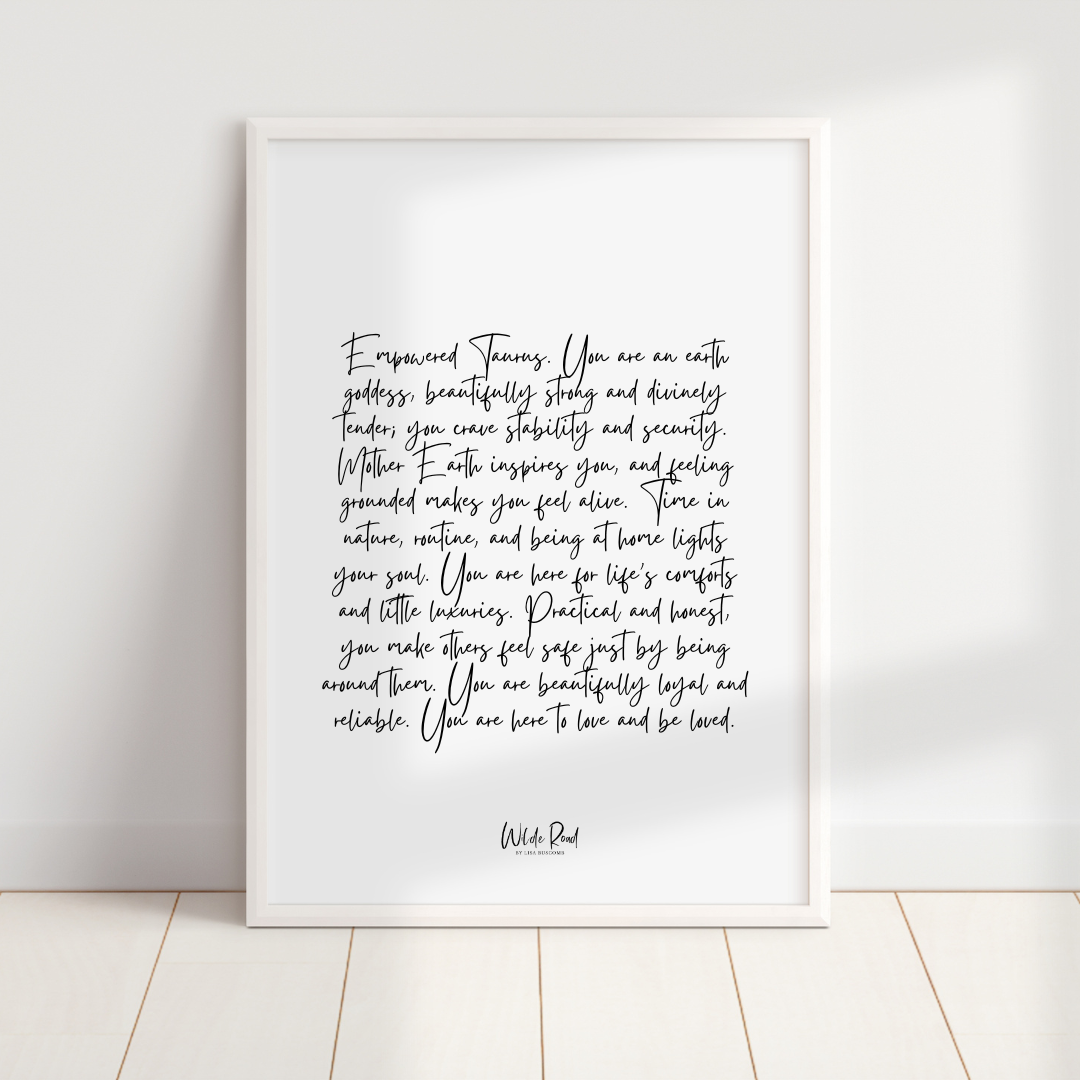 Empowered Taurus. You are an earth
goddess, beautifully strong and divinely
tender; you crave stability and security.
Mother Earth inspires you, and feeling
grounded makes you feel alive. Time in
nature, routine, and being at home lights
your soul. You are here for life's comforts
and little luxuries. Practical and honest,
you make others feel safe just by being
around them. You are beautifully loyal and
reliable. You are here to love and be loved.
Wilde Road
BY LISA BUSCOMB